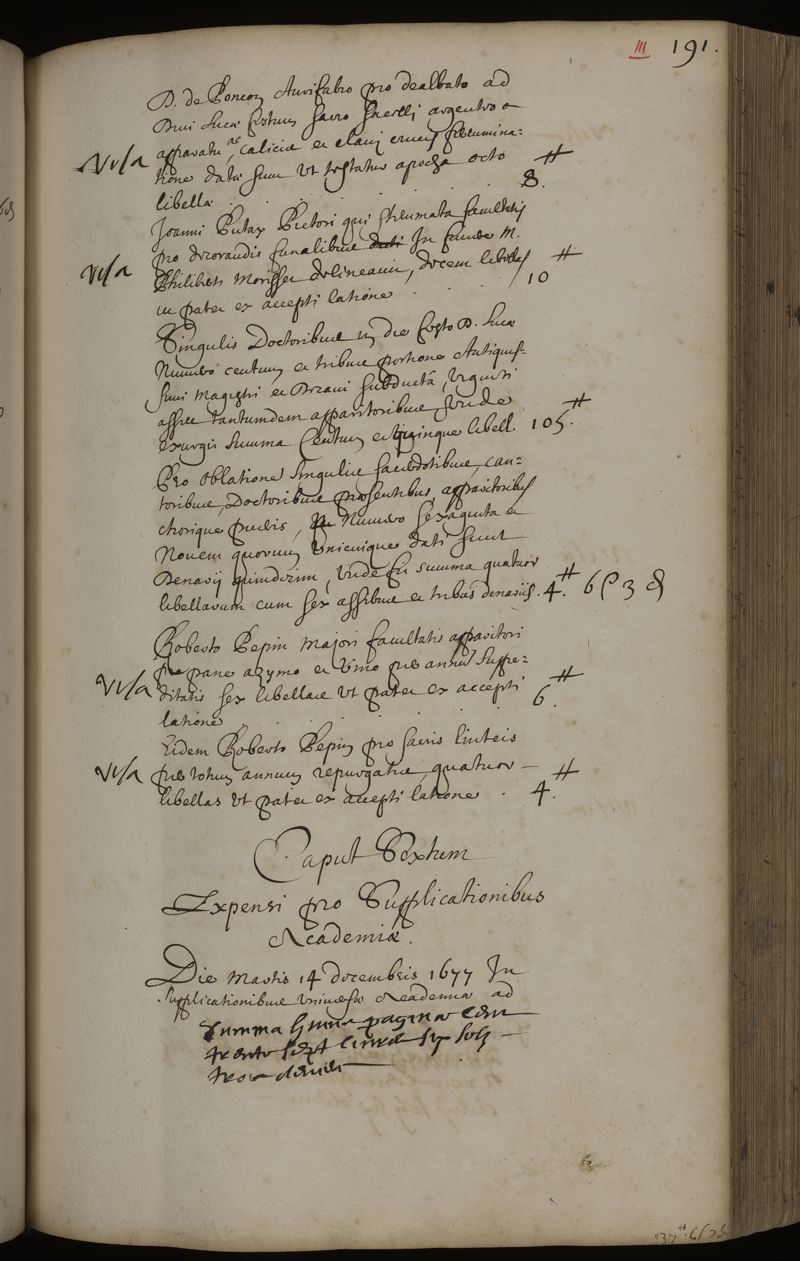 III 191.
D. de Poncon Aurifabro pro dealbato ad
Divi Lucæ festum sacro argenteo
Visa apparatu, ac calicis et clavi crucis ferrumina=
tione datæ sunt ut testatur apocha octo
libellæ . . . . . 8.ᵗᵗ
Joanni Pictori qui stemmata facultatis
pro decorandis funalibus dati In funere M.
Visa Philiberti Morisset delineavit, decem libellas
ut patet ex accepti latione . . . 10ᵗᵗ
Singulis Doctoribus in die festo D. Lucæ
Numero centum et tribus portione Antiquis=
simi Magistri et Decani subducta, viginti
asses tantumdem apparitoribus unde
exurgit summa Centum et quinque libell. 105.ᵗᵗ
Pro oblatione singulis sacerdotibus, can=
toribus, Doctoribus præsentibus, apparitoribus
chorique pueris, Numero sexaginta et
Novem quorum Unicuique dati sunt
Denarij quindecim, Unde fit summa quatuor
libellarum cum sex assibus et tribus denariis. 4.ᵗᵗ 6 ſ 3 ₰
Roberto Pepin Majori facultatis apparitori
pro pane azymo et Vino per annum suppe=
Visa ditatis sex libellæ ut patet ex accepti
latione . . . . . 6.ᵗᵗ
Eidem Roberto Pepin pro sacris linteis
Visa per totum annum repurgatis, quatuor —
libellas ut patet ex accepti latione . 4.ᵗᵗ
Caput Sextum
Expensi pro Supplicationibus
Academiæ.
Die Martis 14 decembris 1677 In
Supplicationibus Universæ Academiæ ad
Summa huius paginæ Cent
trente sept livres six solz —
trois deniers
137ᵗᵗ 6 ſ 3 ₰